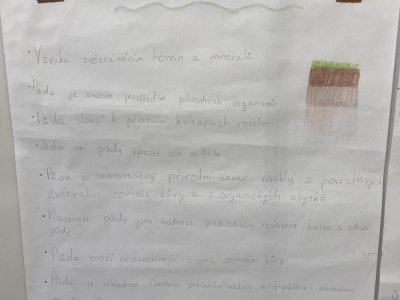 • Vzniká zvětráváním hornin a minerálů
• Půda je životním prostředím půdních organismů
• Půda slouží k pěstování kulturních rostlin
• Jeden cm půdy vyroste za 100 let
• Půda je samostatný přírodní útvar vzniklý z povrchových
zvětralin zemské kůry a z organických zbytků
• Vlastnosti půdy jsou úrodnost, produktivita, resilience, kvalita a zdraví
půdy
• Půda tvoří nejsvrchnější vrstvu zemské kůry
• Půda je základním článkem potravního řetězce a